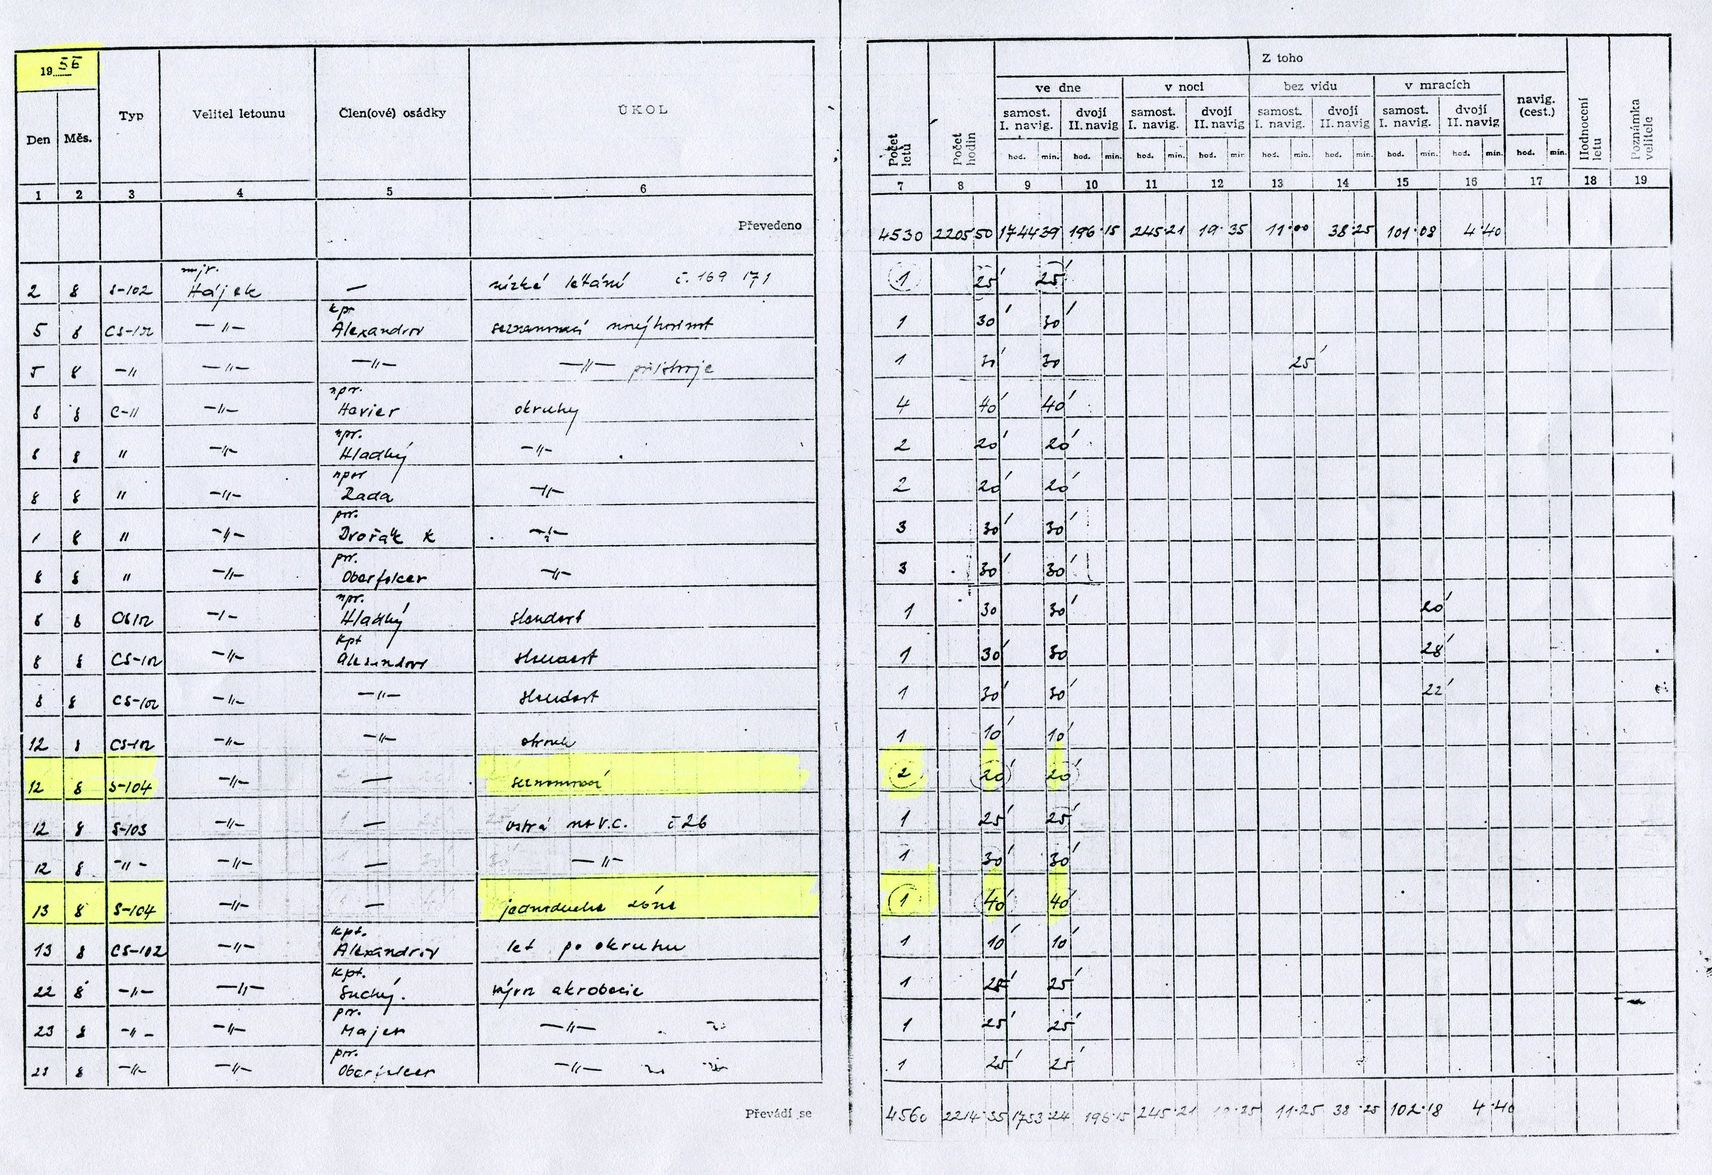 1956
Den Měs. Typ Velitel letounu Člen(ové) osádky ÚKOL
Počet letů Počet hodin Z toho Hodnocení letu Poznámka velitele
ve dne v noci bez vidu v mracích navig. (cest.)
samost. I. navig. dvojí II. navig samost. I. navig. dvojí II. navig samost. I. navig. dvojí II. navig samost. I. navig. dvojí II. navig
hod. min. hod. min. hod. min. hod. min. hod. min. hod. min. hod. min. hod. min. hod. min.
1 2 3 4 5 6 7 8 9 10 11 12 13 14 15 16 17 18 19
Převedeno 4530 2205 50 1744 39 196·15 245·21 19·35 11·00 38·25 101·08 4·40
2 8 S-102 mjr. Hájek — nízké létání č. 169 171 1 25' 25'
5 8 CS-102 —„— kpt Alexandrov 1 30' 30'
5 8 —„ —„— —„— —„— přístroje 1 30' 30 25'
8 8 C-11 —„— npr. Havier okruhy 4 40' 40'
8 8 „ —„— npr. Hladký —„— 2 20' 20'
8 8 „ —„— npor Zada —„— 2 20' 20'
8 „ —„— prr. Dvořák K —„— 3 30' 30'
8 8 „ —„— prr. Oberfalcer —„— 3 30' 30'
8 8 —„— npr. Hladký 1 30 30' 20'
8 8 CS-102 —„— kpt 1 30' 30 28'
8 8 CS-102 —„— —„— 1 30' 30' 22'
12 8 CS-102 —„— —„— okruh 1 10' 10'
12 8 S-104 —„— — seznamovací 2 20' 20'
12 8 S-103 —„— — ostrá č 26 1 25' 25'
12 8 —„— —„— — —„— 1 30' 30'
13 8 S-104 —„— — jednoduchá zóna 1 40' 40'
13 8 CS-102 —„— kpt. Alexandrov let po okruhu 1 10' 10'
22 8 —„— —„— kpt. Suchý. akrobacie 1 25' 25'
23 8 —„— —„— prr. Majer —„— 1 25' 25'
23 8 —„— —„— prr. Oberfalcer —„— 1 25' 25'
Převádí se 4560 2214·35 1753·24 196·15 245·21 19·25 11·25 38·25 102·18 4·40